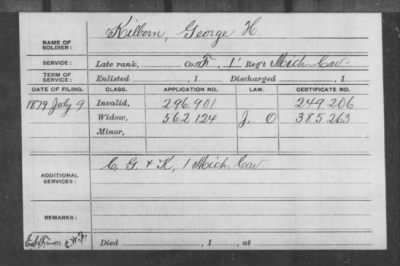 NAME OF SOLDIER: Kilborn, George H.
SERVICE: Late rank, Co. F, 1 Reg't Mich Cav
TERM OF SERVICE: Enlisted , 1 Discharged , 1
DATE OF FILING. CLASS. APPLICATION NO. LAW. CERTIFICATE NO.
1879 July 9 Invalid, 296.901 249 206
Widow, 562.124 J. O 385.263
Minor,
ADDITIONAL SERVICES: C, G, & K, 1 Mich. Cav
REMARKS:
Died , 1 , at